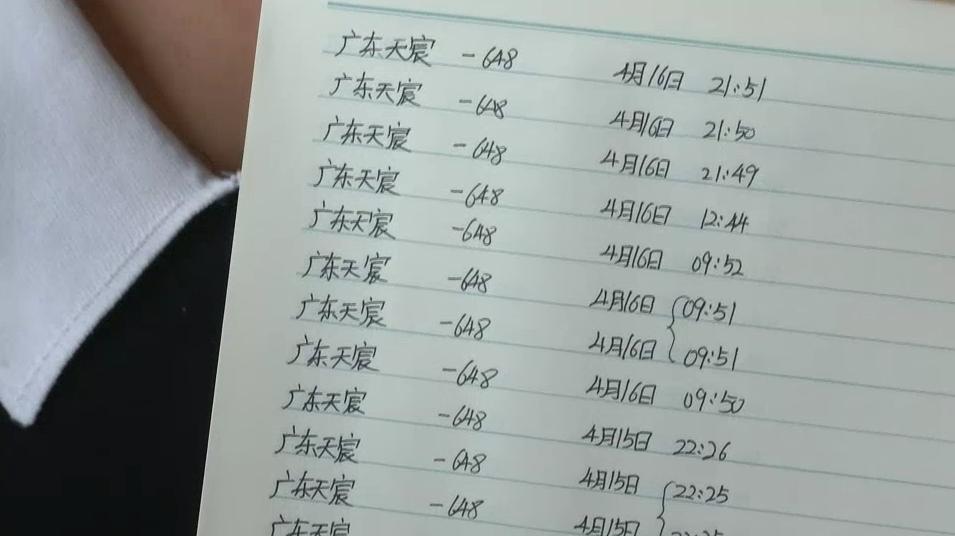 广东天宸 -648 4月16日 21:51
广东天宸 -648 4月16日 21:50
广东天宸 -648 4月16日 21:49
广东天宸 -648 4月16日 12:44
广东天宸 -648 4月16日 09:52
广东天宸 -648 4月16日 09:51
广东天宸 -648 4月16日 09:51
广东天宸 -648 4月16日 09:50
广东天宸 -648 4月15日 22:26
广东天宸 -648 4月15日 22:25
广东天宸 -648 4月15日
广东天宸